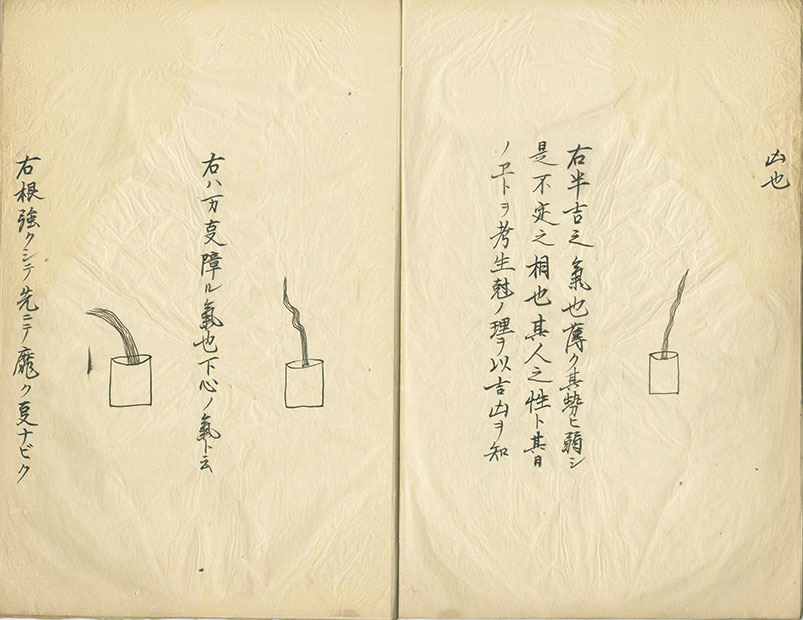 凶也
右半吉之氣也薄ク其勢ヒ弱シ
是不定之相也其人之性ト其日
ノヱトヲ考生尅ノ理ヲ以吉凶ヲ知
右ハ万叓障ル氣也下心ノ氣ト云
右根強クシテ先ニテ靡ク叓ナビク